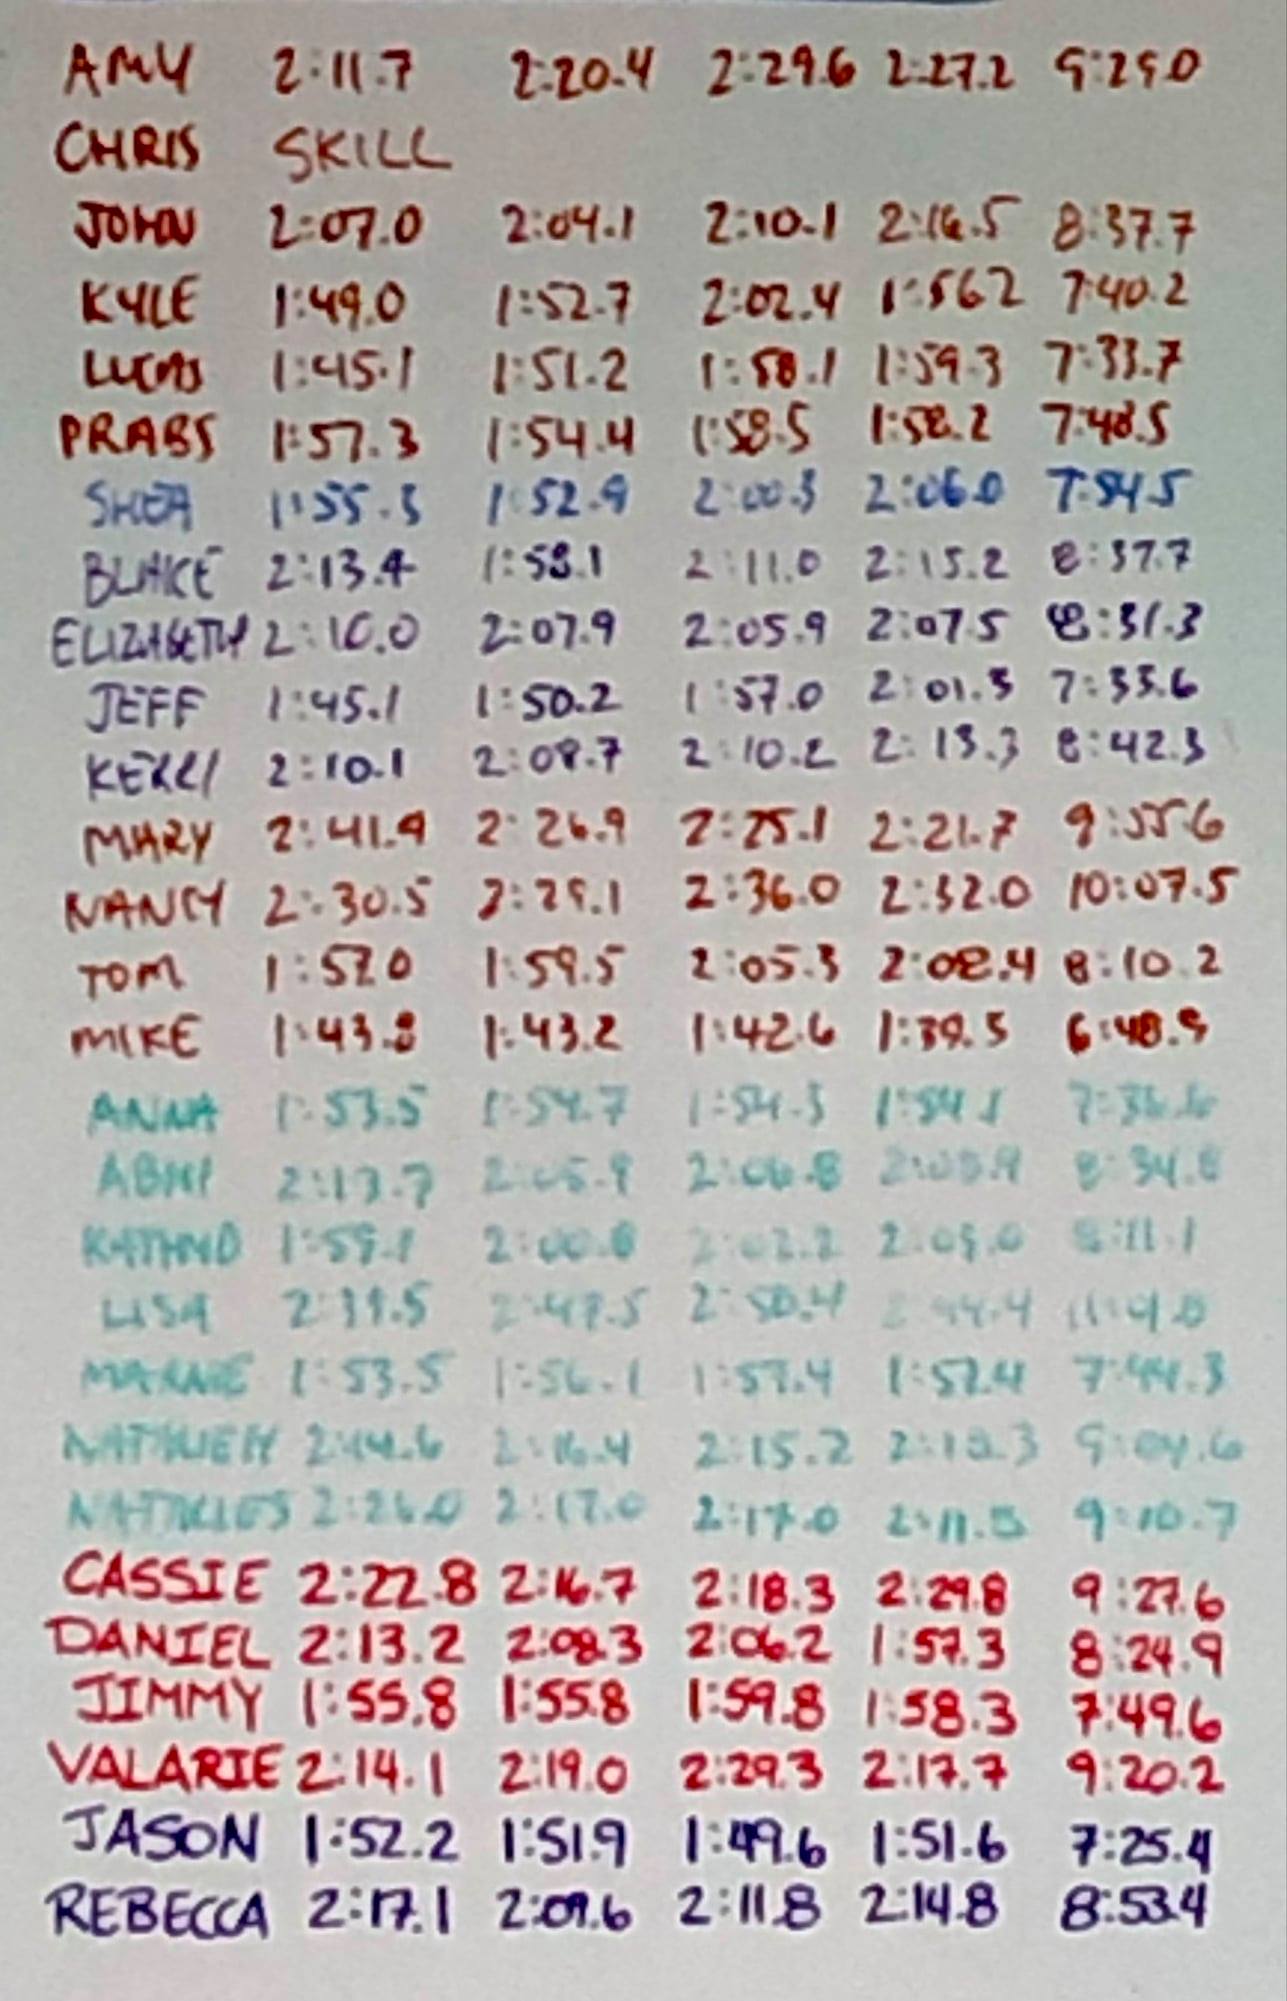 AMY 2:11.7 2:20.4 2:29.6 2:27.2 9:29.0
CHRIS SKILL
JOHN 2:07.0 2:04.1 2:10.1 2:16.5 8:37.7
KYLE 1:49.0 1:52.7 2:02.4 1:56.2 7:40.2
LUCAS 1:45.1 1:51.2 1:58.1 1:59.3 7:33.7
PRABS 1:57.3 1:54.4 1:58.5 1:58.2 7:48.5
SHEA 1:55.3 1:52.9 2:00.3 2:06.0 7:54.5
BLAKE 2:13.4 1:58.1 2:11.0 2:15.2 8:37.7
ELIZABETH 2:10.0 2:07.9 2:05.9 2:07.5 8:31.3
JEFF 1:45.1 1:50.2 1:57.0 2:01.3 7:33.6
KERRI 2:10.1 2:08.7 2:10.2 2:13.3 8:42.3
MARY 2:41.9 2:26.9 2:25.1 2:21.7 9:55.6
NANCY 2:30.5 2:29.1 2:36.0 2:32.0 10:07.5
TOM 1:57.0 1:59.5 2:05.3 2:08.4 8:10.2
MIKE 1:43.8 1:43.2 1:42.6 1:39.5 6:48.9
ANNA 1:53.5 1:54.7 1:54.3 1:54.1 7:36.6
ABHI 2:13.7 2:06.8
1:59.1 2:00.8 2:02.2 2:09.0 8:11.1
LISA 2:39.5 2:47.5 2:50.4
MARNIE 1:53.5 1:56.1 1:57.4 1:57.4 7:44.3
2:14.6 2:16.4 2:15.2 9:04.6
2:17.0 2:17.0 9:10.7
CASSIE 2:22.8 2:16.7 2:18.3 2:29.8 9:27.6
DANIEL 2:13.2 2:08.3 2:06.2 1:57.3 8:24.9
JIMMY 1:55.8 1:55.8 1:59.8 1:58.3 7:49.6
VALARIE 2:14.1 2:19.0 2:29.3 2:17.7 9:20.2
JASON 1:52.2 1:51.9 1:49.6 1:51.6 7:25.4
REBECCA 2:17.1 2:09.6 2:11.8 2:14.8 8:53.4